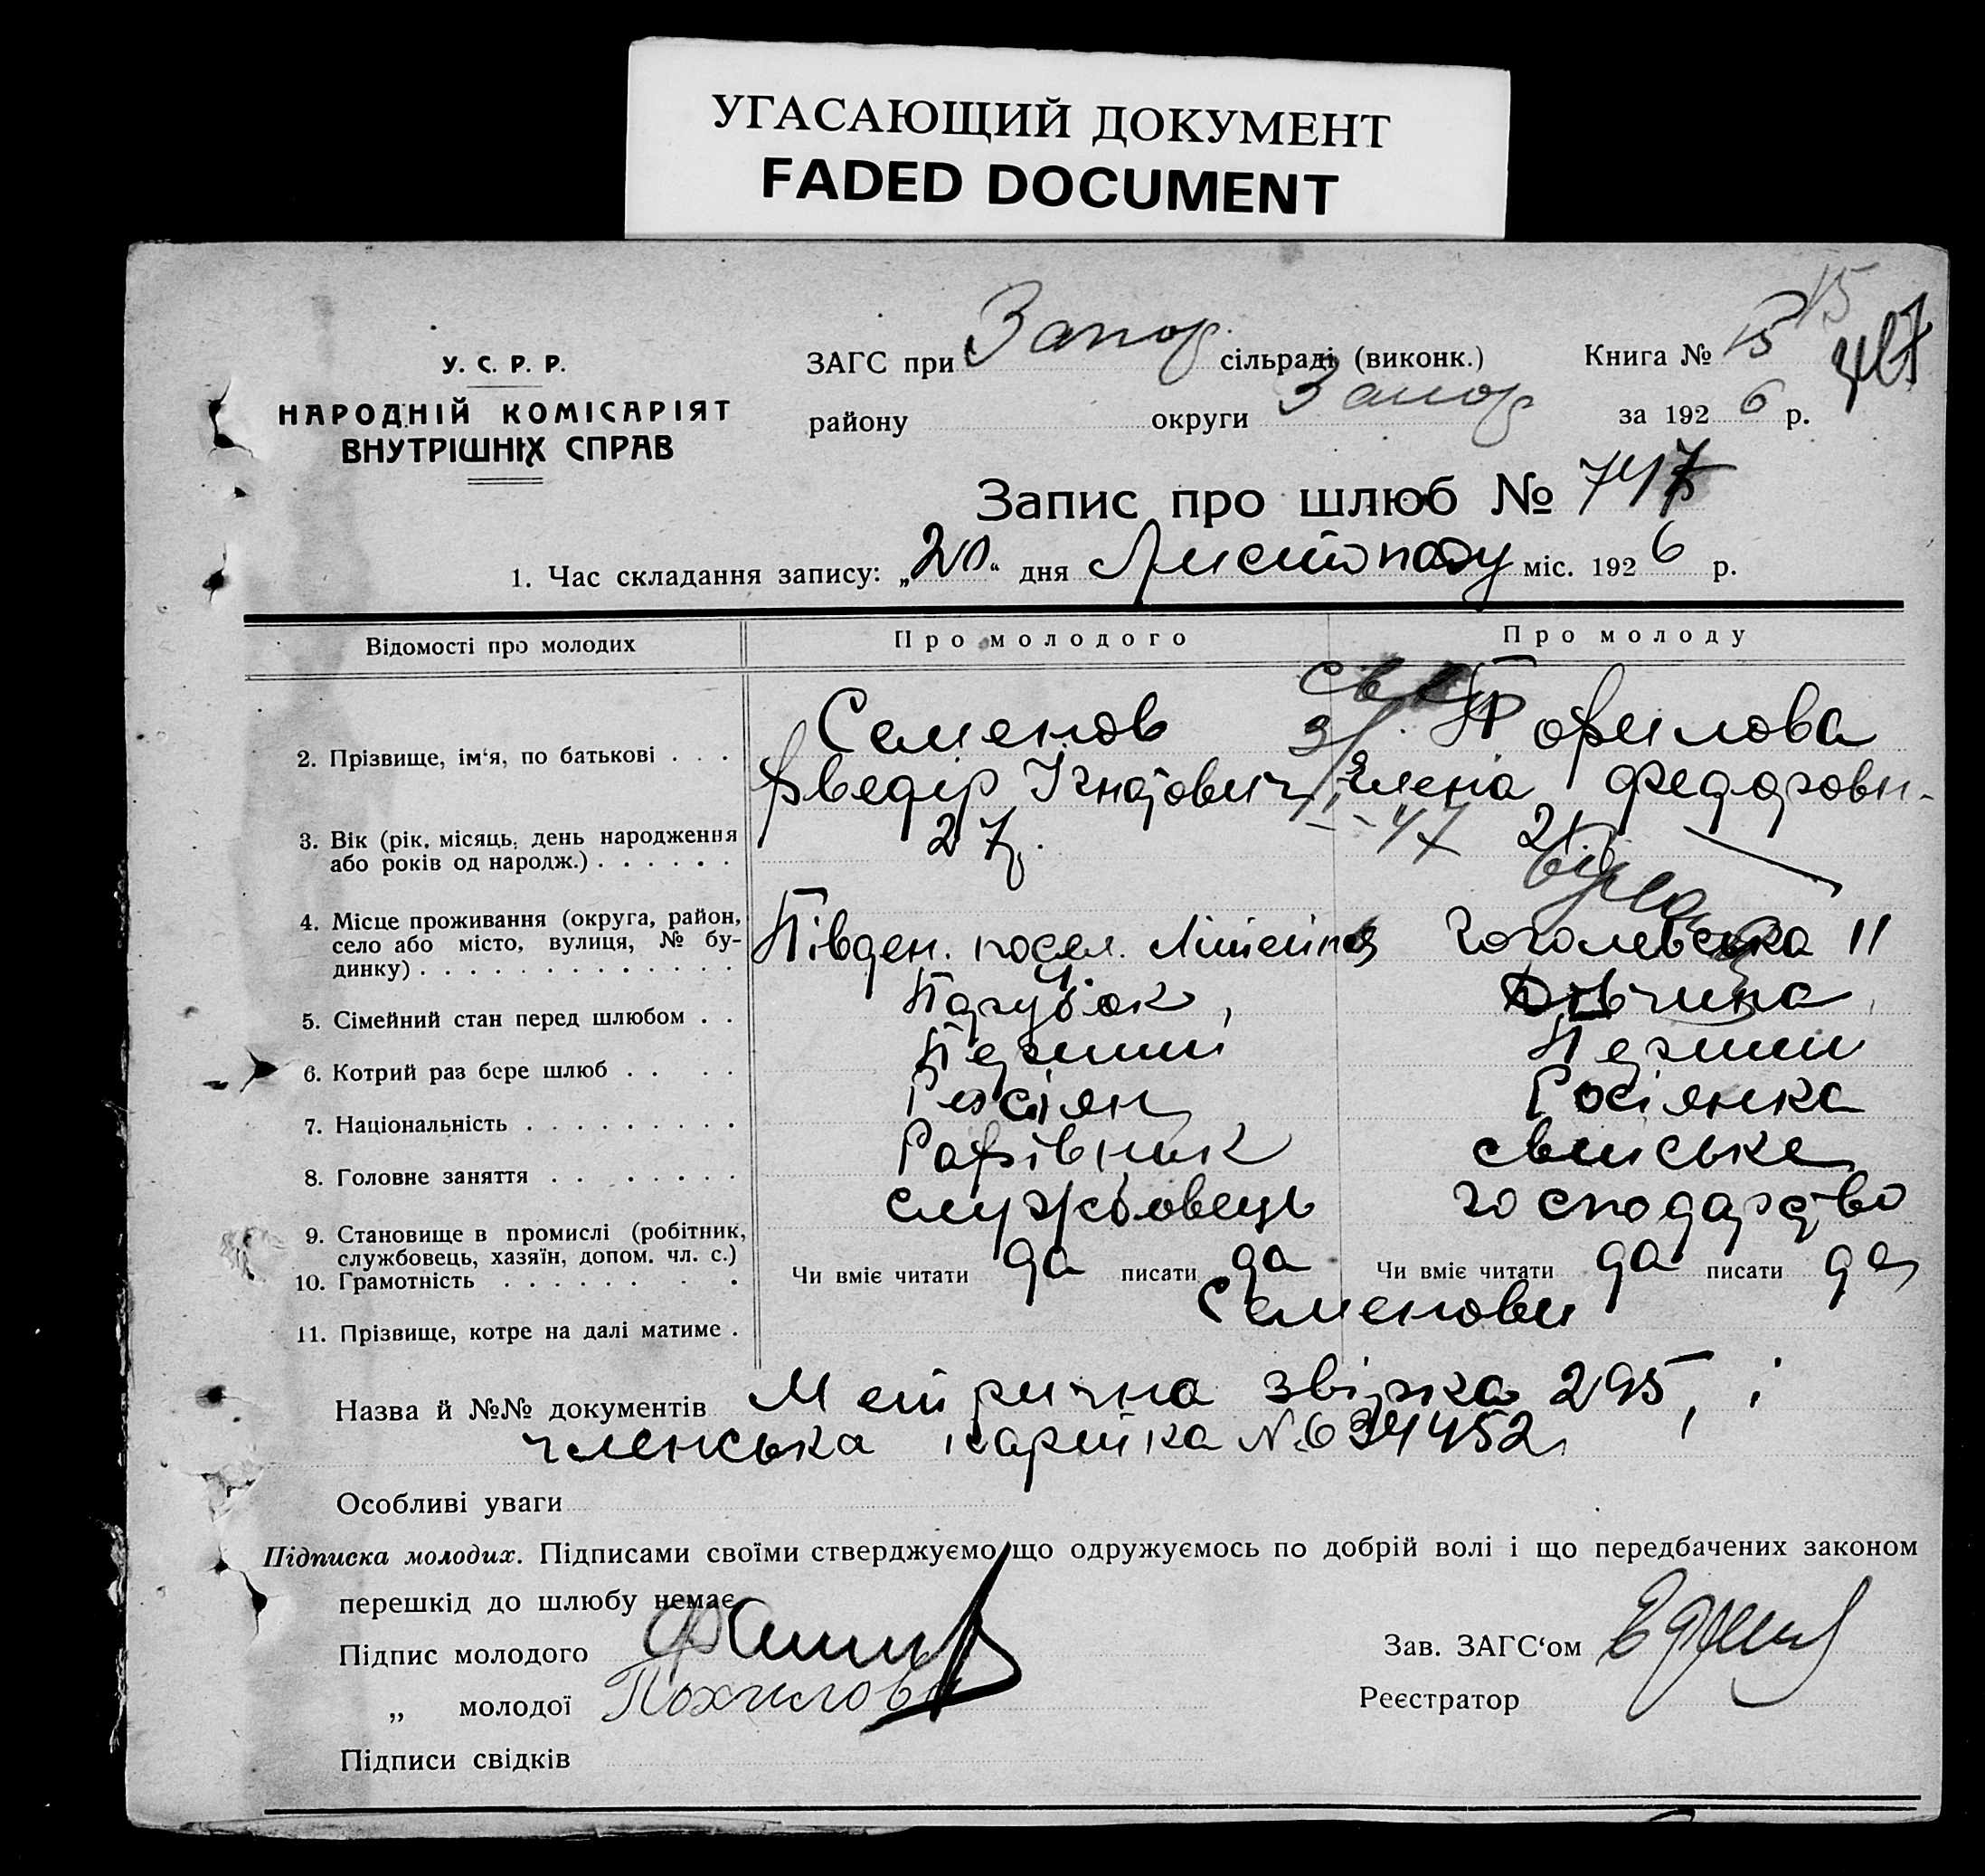 УГАСАЮЩИЙ ДОКУМЕНТ
FADED DOCUMENT
15
У. С. Р. Р.
НАРОДНІЙ КОМІСАРІЯТ
ВНУТРІШНІХ СПРАВ
ЗАГС при Запор. сільраді (виконк.) Книга № 15
району округи Запор за 1926 р.
Запис про шлюб № 747
1. Час складання запису: „20“ дня Листопаду міс. 1926 р.
Відомості про молодих Про молодого Про молоду
2. Прізвище, ім‘я, по батькові . . . Семенов
Ігнатович Елена Федоровн-
3. Вік (рік, місяць, день народження
або років од народж.) . . . . . . 27
4. Місце проживання (округа, район,
село або місто, вулиця, № бу-
динку) . . . . . . . . . . . . . Півден. посел. Гоголевська 11
5. Сімейний стан перед шлюбом . . Парубок, Дівчина
6. Котрий раз бере шлюб . . . . Перший Перший
7. Національність . . . . . . . . . Росіян Росіянка
8. Головне заняття . . . . . . . .
9. Становище в промислі (робітник,
службовець, хазяїн, допом. чл. с.) службовець господарство
10. Грамотність . . . . . . . . Чи вміє читати да писати да Чи вміє читати да писати да
11. Прізвище, котре на далі матиме . Семенови
Назва й №№ документів Метрична звірка 295, і
членська картка № 634452
Особливі уваги
Підписка молодих. Підписами своїми стверджуємо що одружуємось по добрій волі і що передбачених законом
перешкід до шлюбу немає
Підпис молодого Зав. ЗАГС‘ом
„ молодої Реєстратор
Підписи свідків